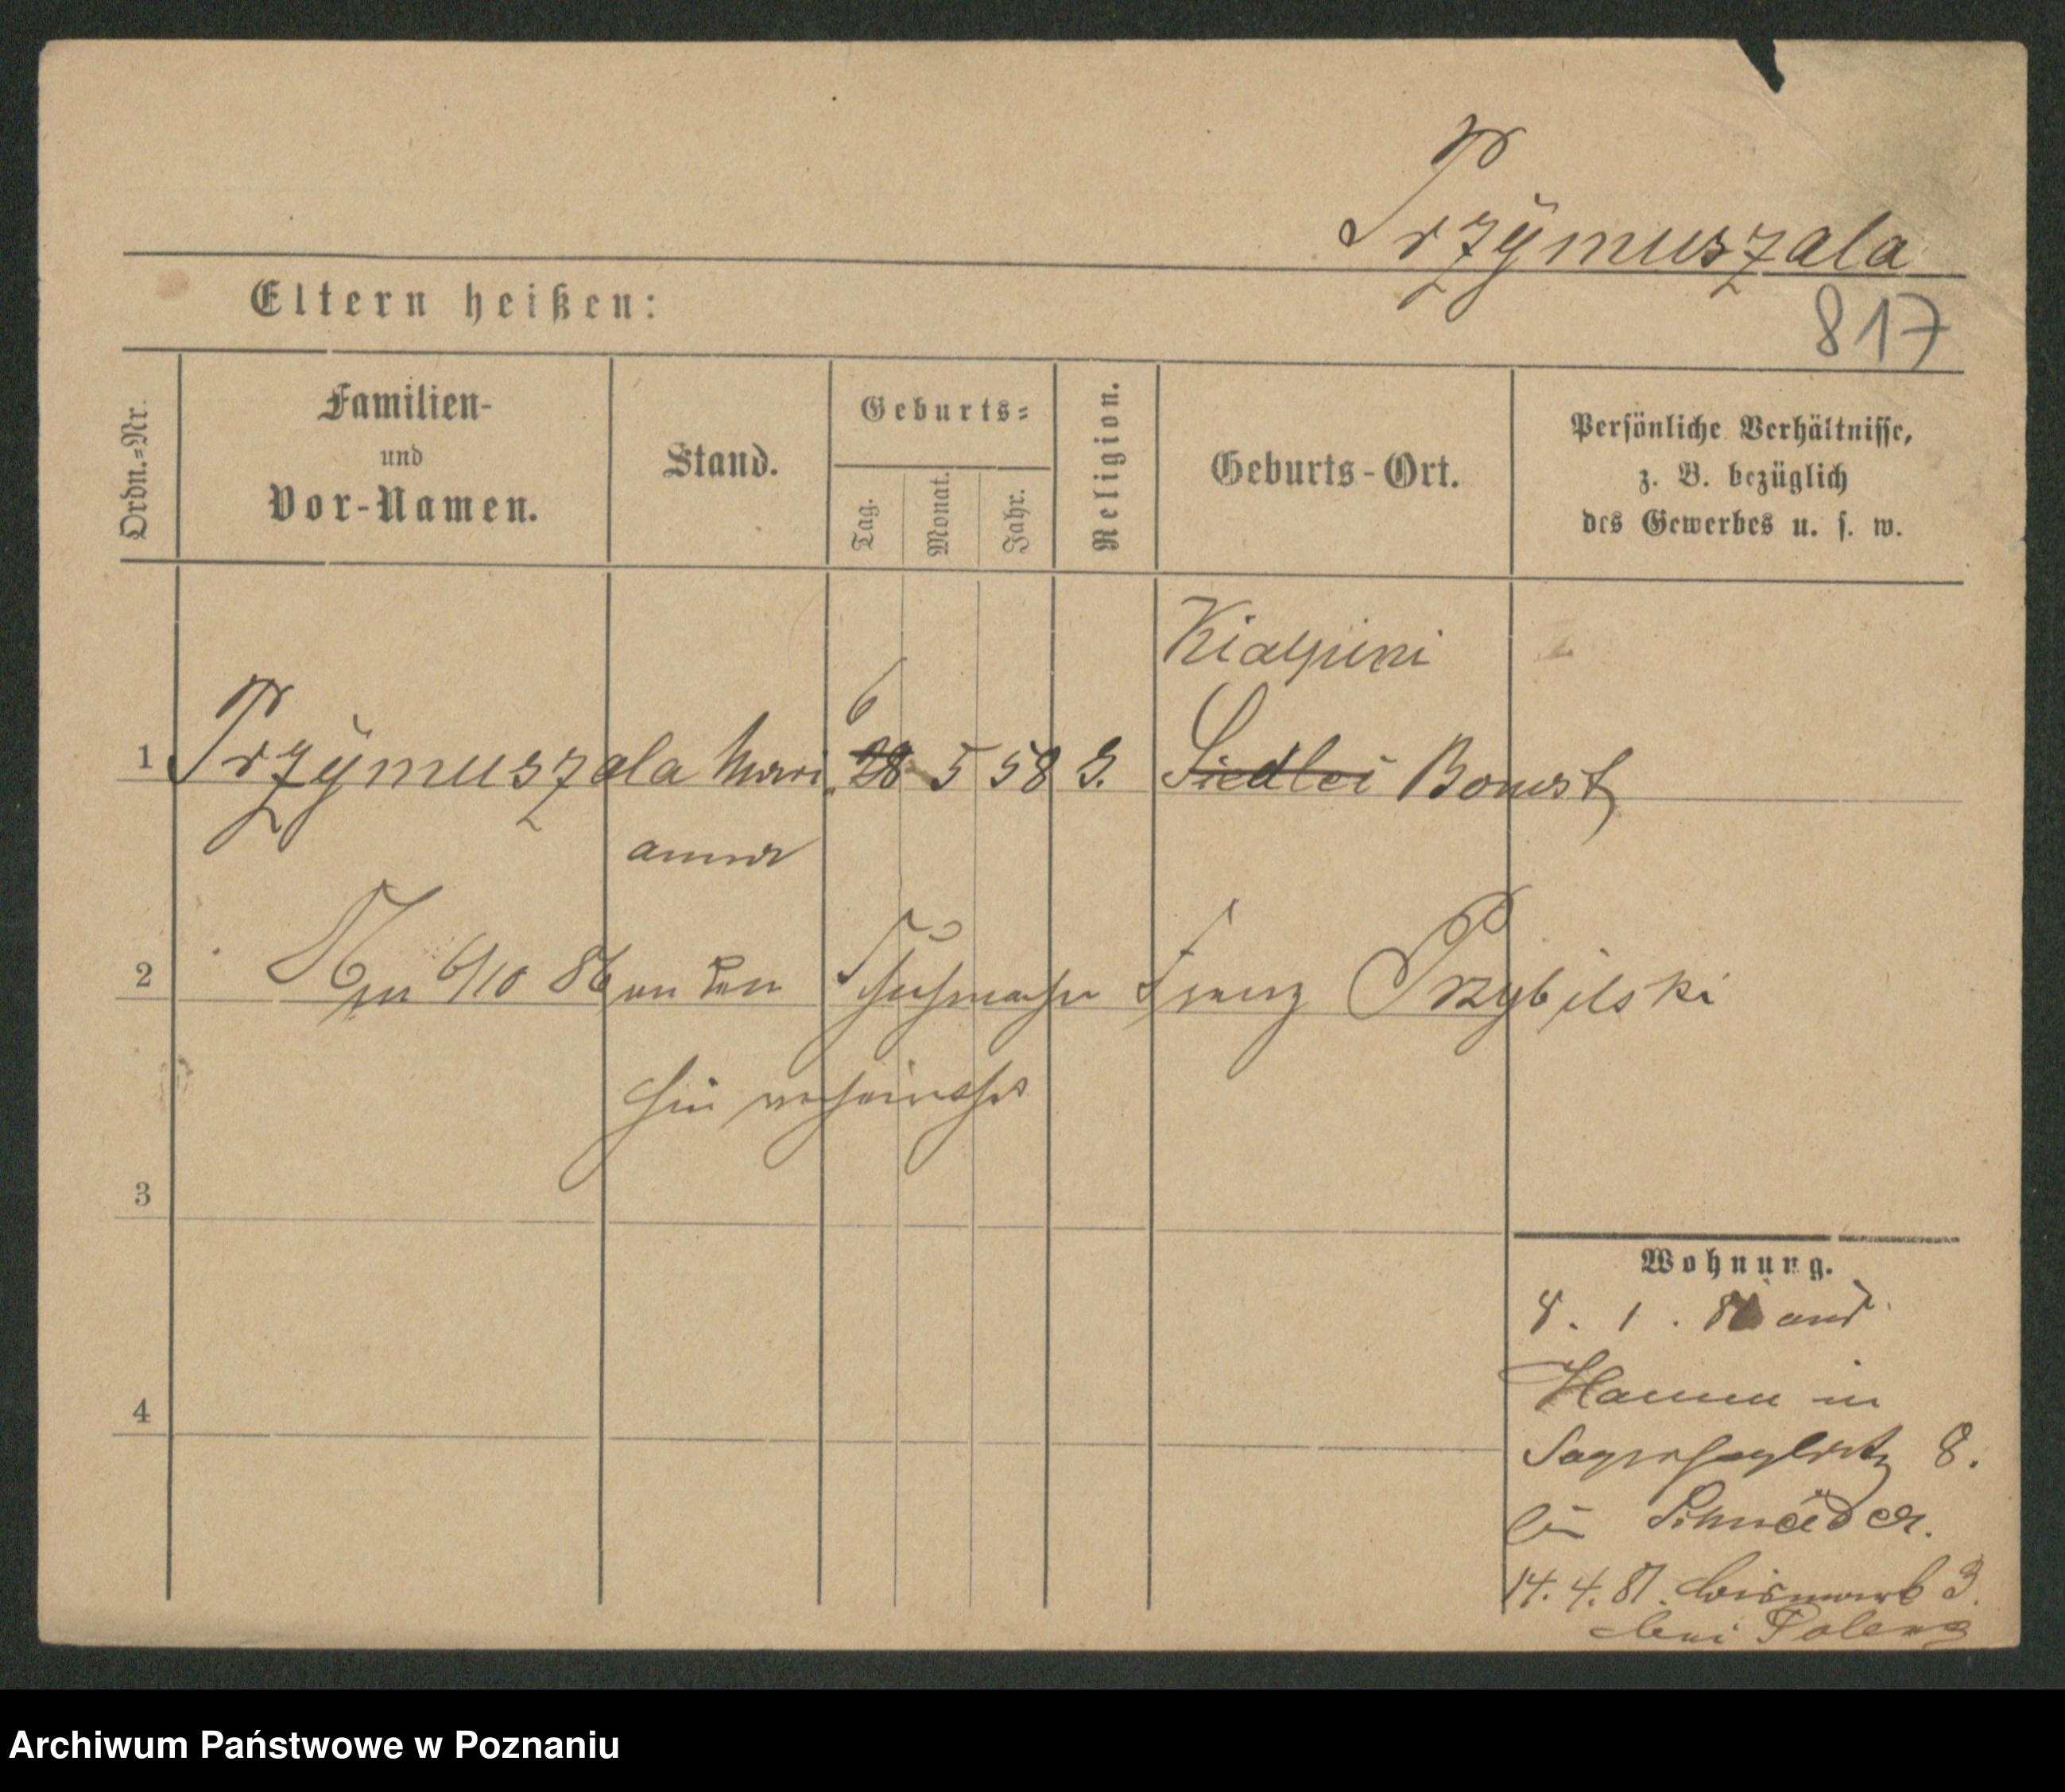 Przÿmuszala
817
Eltern heißen:
Ordn.=Nr.
Familien-
und
Vor-Namen.
Stand.
Geburts=
Tag.
Monat.
Jahr.
Religion.
Geburts-Ort.
Persönliche Verhältnisse,
z. B. bezüglich
des Gewerbes u. s. w.
6
1 Przÿmuszala 28 5 58 Siedlei Bomst
anna
2 6/10 86 an den Franz Przybilski
hier
3
4
Wohnung.
8. 1. and
Hamm in
8.
bei Schneider.
14. 4. 87. Bismark 3.
bei
Archiwum Państwowe w Poznaniu